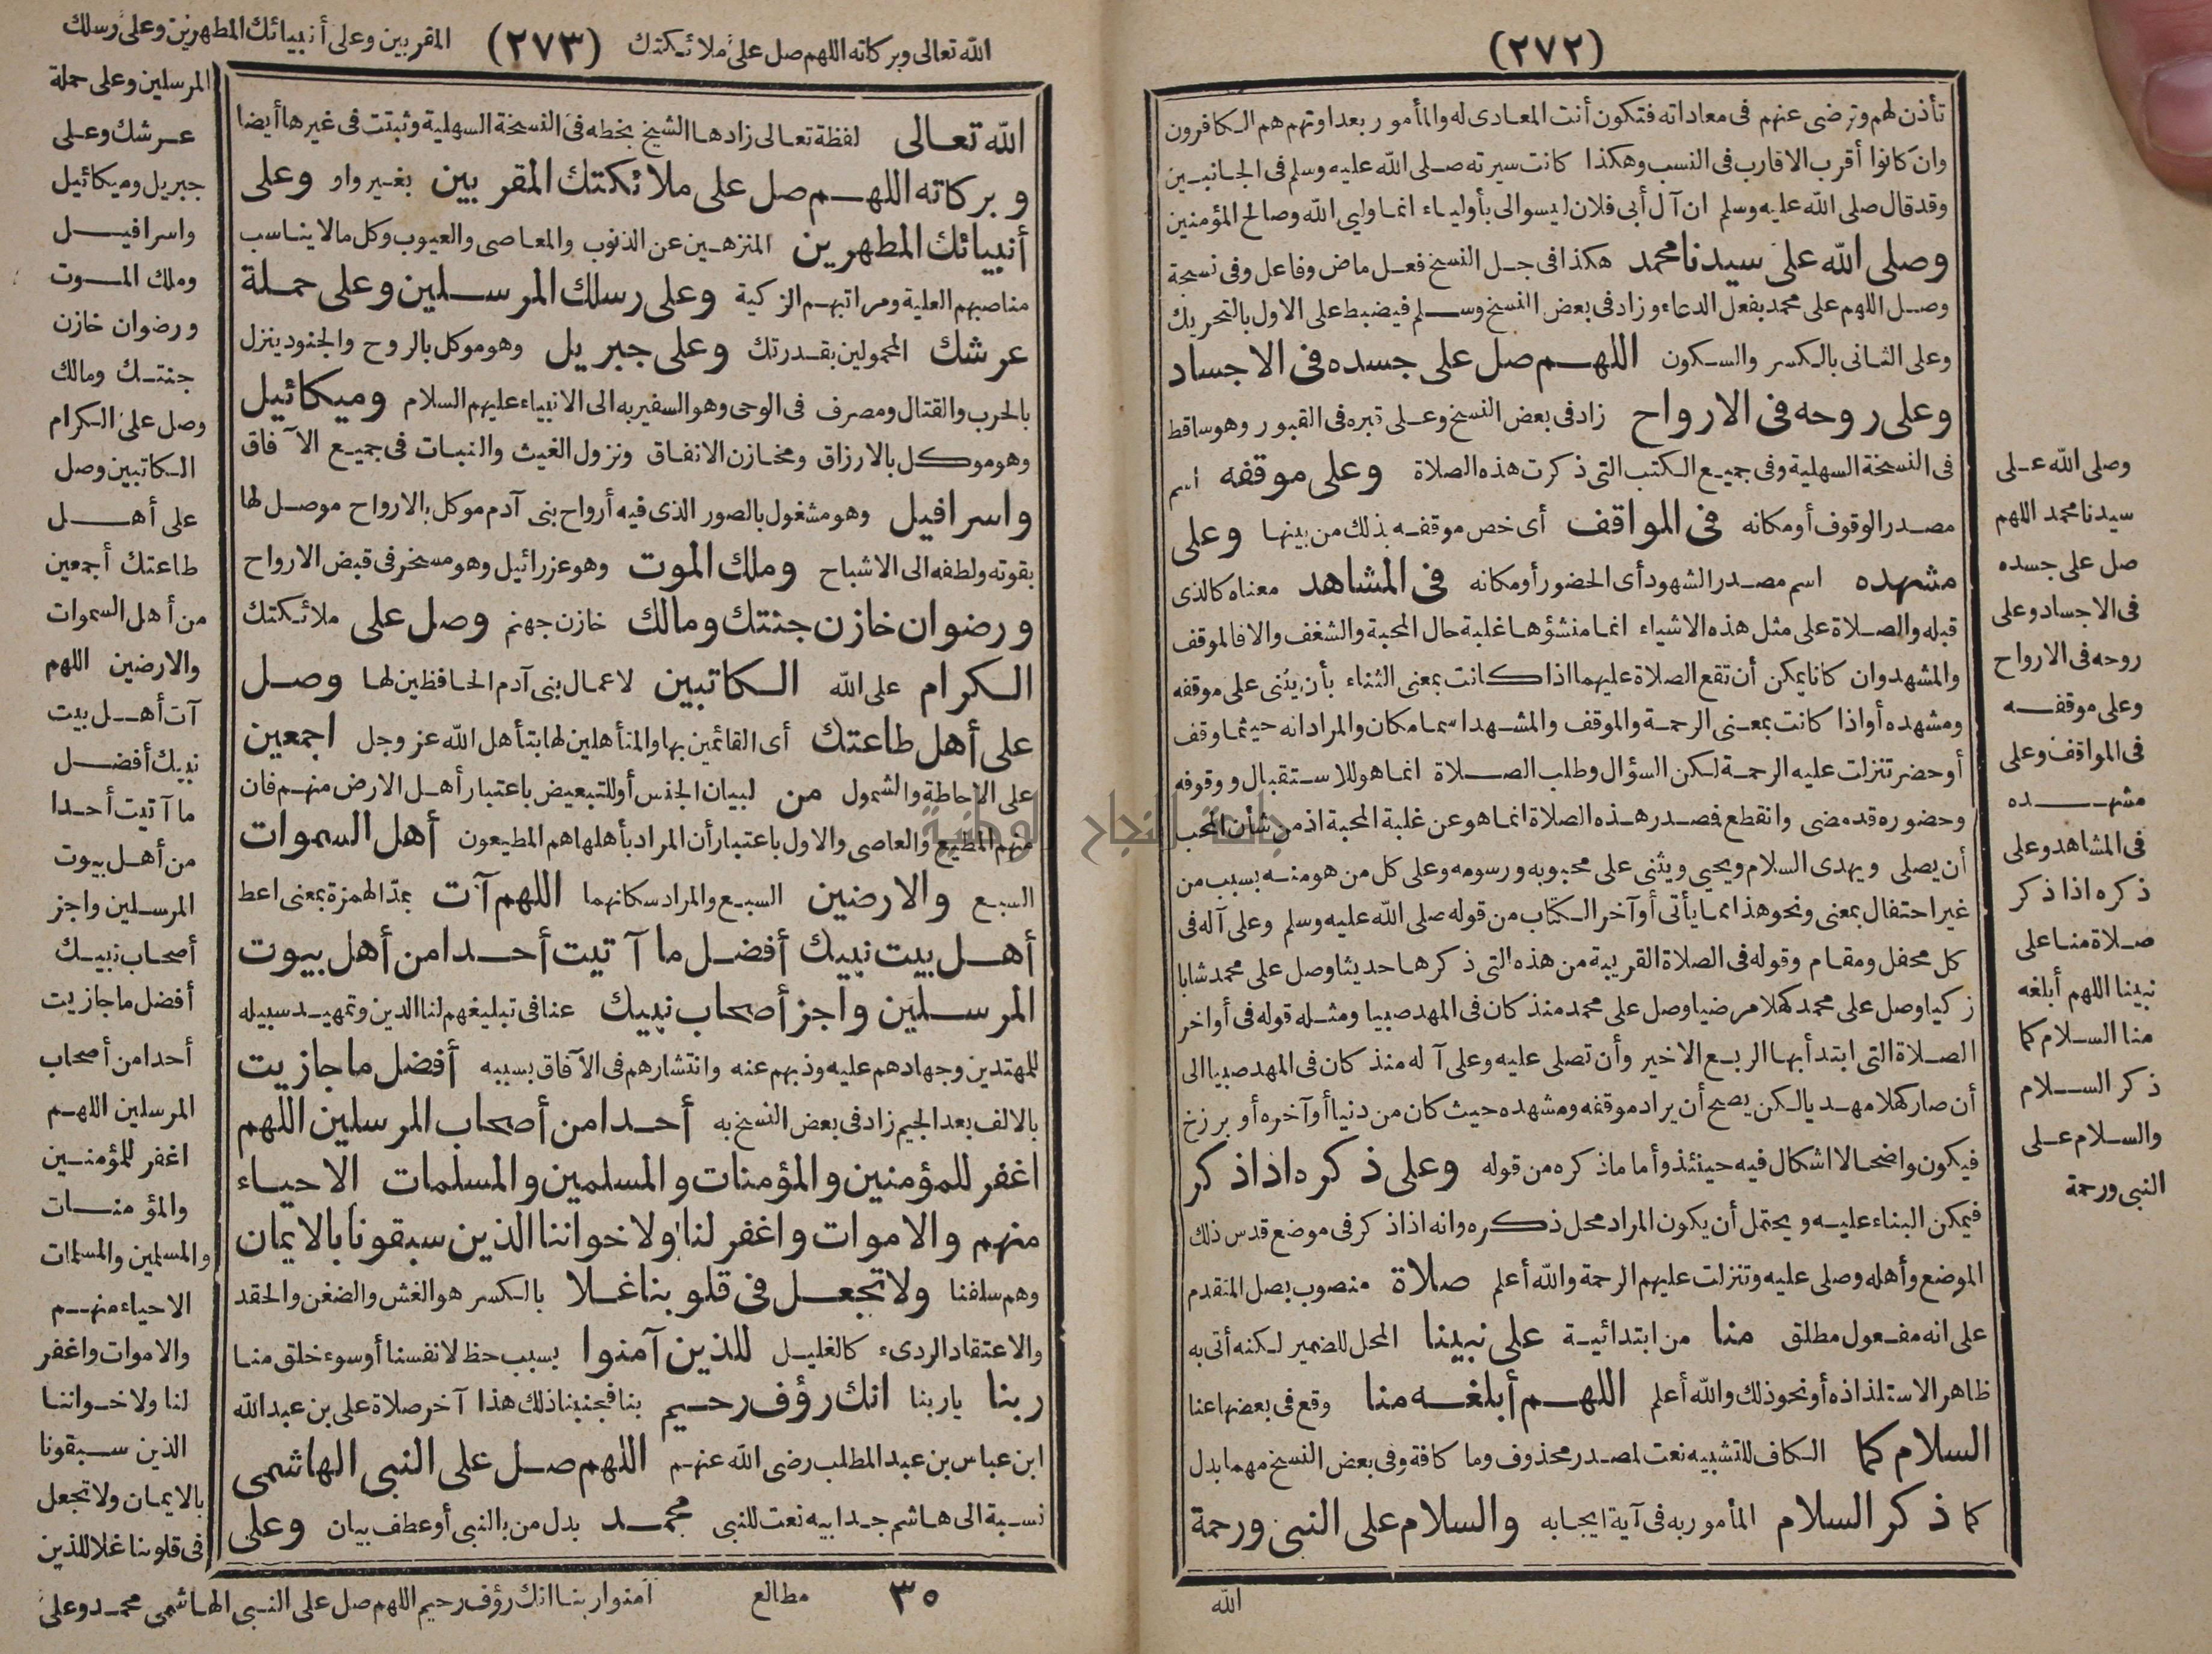 (٢٧٢)
تأذن لهم وترضى عنهم فى معاداته فتكون أنت المعادى له والمأمور بعداوتهم هم الكافرون
وان كانوا أقرب الاقارب فى النسب وهكذا كانت سيرته صلى الله عليه وسلم فى الجانبين
وقد قال صلى الله عليه وسلم ان آل أبى فلان ليسوا لى بأولياء انما وليي الله وصالح المؤمنين
وصلى الله على سيدنا محمد هكذا فى جل النسخ فعل ماض وفاعل وفى نسخة
وصل اللهم على محمد بفعل الدعاء وزاد فى بعض النسخ وسلم فيضبط على الاول بالتحريك
وعلى الثانى بالكسر والسكون اللهم صل على جسده فى الاجساد
وعلى روحه فى الارواح زاد فى بعض النسخ وعلى قبره فى القبور وهو ساقط
فى النسخة السهلية وفى جميع الكتب التى ذكرت هذه الصلاة وعلى موقفه اسم
مصدر الوقوف أو مكانه فى المواقف أى خص موقفه بذلك من بينها وعلى
مشهده اسم مصدر الشهود أى الحضور أو مكانه فى المشاهد معناه كالذى
قبله والصلاة على مثل هذه الاشياء انما منشؤها غلبة حال المحبة والشغف والا فالموقف
والمشهد وان كانا يمكن أن تقع الصلاة عليهما اذا كانت بمعنى الثناء بأن يثنى على موقفه
ومشهده أو اذا كانت بمعنى الرحمة والموقف والمشهد اسما مكان والمراد انه حيثما وقف
أو حضر تنزلت عليه الرحمة لكن السؤال وطلب الصلاة انما هو للاستقبال ووقوفه
وحضوره قد مضى وانقطع فصدر هذه الصلاة انما هو عن غلبة المحبة اذ من شأن المحب
أن يصلى ويهدى السلام ويحيي ويثنى على محبوبه ورسومه وعلى كل من هو منه بسبب من
غير احتفال بمعنى ونحو هذا مما يأتى أو آخر الكتاب من قوله صلى الله عليه وسلم وعلى آله فى
كل محفل ومقام وقوله فى الصلاة القريبة من هذه التى ذكرها حديثا وصل على محمد شابا
زكيا وصل على محمد كهلا مرضيا وصل على محمد منذ كان فى المهد صبيا ومثله قوله فى أواخر
الصلاة التى ابتدأ بها الربع الاخير وأن تصلى عليه وعلى آله منذ كان فى المهد صبيا الى
أن صار كهلا مهديا لكن يصح أن يراد موقفه ومشهده حيث كان من دنيا أو آخره أو برزخ
فيكون واضحا لا اشكال فيه حينئذ وأما ما ذكره من قوله وعلى ذكره اذا ذكر
فيمكن البناء عليه ويحتمل أن يكون المراد محل ذكره وانه اذا ذكر فى موضع قدس ذلك
الموضع وأهله وصلى عليه وتنزلت عليهم الرحمة والله أعلم صلاة منصوب بصل المتقدم
على انه مفعول مطلق منا من ابتدائية على نبينا المحل للضمير لكنه أتى به
ظاهر الاستلذاذه أو نحو ذلك والله أعلم اللهم أبلغه منا وقع فى بعضها عنا
السلام كما الكاف للتشبيه نعت لمصدر محذوف وما كافة وفى بعض النسخ مهما بدل
كما ذكر السلام المأمور به فى آية ايجابه والسلام على النبى ورحمة
الله
وصلى الله على
سيدنا محمد اللهم
صل على جسده
فى الاجساد وعلى
روحه فى الارواح
وعلى موقفه
فى المواقف وعلى
مشهده
فى المشاهد وعلى
ذكره اذا ذكر
صلاة منا على
نبينا اللهم أبلغه
منا السلام كما
ذكر السلام
والسلام على
النبى ورحمة
الله تعالى وبركاته اللهم صل على ملائكتك (٢٧٣) المقربين وعلى أنبيائك المطهرين وعلى رسلك
الله تعالى لفظة تعالى زادها الشيخ بخطه فى النسخة السهلية وثبتت فى غيرها أيضا
وبركاته اللهم صل على ملائكتك المقربين بغير واو وعلى
أنبيائك المطهرين المنزهين عن الذنوب والمعاصى والعيوب وكل ما لا يناسب
مناصبهم العلية ومراتبهم الزكية وعلى رسلك المرسلين وعلى حملة
عرشك المحمولين بقدرتك وعلى جبريل وهو موكل بالروح والجنود ينزل
بالحرب والقتال ومصرف فى الوحى وهو السفير به الى الانبياء عليهم السلام وميكائيل
وهو موكل بالارزاق ومخازن الانفاق ونزول الغيث والنبات فى جميع الآفاق
واسرافيل وهو مشغول بالصور الذى فيه أرواح بنى آدم موكل بالارواح موصل لها
بقوته ولطفه الى الاشباح وملك الموت وهو عزرائيل وهو مسخر فى قبض الارواح
ورضوان خازن جنتك ومالك خازن جهنم وصل على ملائكتك
الكرام على الله الكاتبين لاعمال بنى آدم الحافظين لها وصل
على أهل طاعتك أى القائمين بها والمتأهلين لها بتأهل الله عز وجل اجمعين
على الاحاطة والشمول من لبيان الجنس أو للتبعيض باعتبار أهل الارض منهم فان
منهم المطيع والعاصى والاول باعتبار أن المراد بأهلها هم المطيعون أهل السموات
السبع والارضين السبع والمراد سكانهما اللهم آت بمد الهمزة بمعنى اعط
أهل بيت نبيك أفضل ما آتيت أحدا من أهل بيوت
المرسلين واجز أصحاب نبيك عنا فى تبليغهم لنا الدين وتمهيد سبيله
للمهتدين وجهادهم عليه وذبهم عنه وانتشارهم فى الآفاق بسببه أفضل ما جازيت
بالالف بعد الجيم زاد فى بعض النسخ به أحدا من أصحاب المرسلين اللهم
اغفر للمؤمنين والمؤمنات والمسلمين والمسلمات الاحياء
منهم والاموات واغفر لنا ولاخواننا الذين سبقونا بالايمان
وهم سلفنا ولا تجعل فى قلوبنا غلا بالكسر هو الغش والضغن والحقد
والاعتقاد الردىء كالغليل للذين آمنوا بسبب حظ لانفسنا أو سوء خلق منا
ربنا ياربنا انك رؤف رحيم بنا فجنبنا ذلك هذا آخر صلاة على بن عبد الله
ابن عباس بن عبد المطلب رضى الله عنهم اللهم صل على النبى الهاشمى
نسبة الى هاشم جد ابيه نعت للنبى محمد بدل من بالنبى أو عطف بيان وعلى
المرسلين وعلى حملة
عرشك وعلى
جبريل وميكائيل
واسرافيل
وملك الموت
ورضوان خازن
جنتك ومالك
وصل على الكرام
الكاتبين وصل
على أهل
طاعتك أجمعين
من أهل السموات
والارضين اللهم
آت أهل بيت
نبيك أفضل
ما آتيت أحدا
من أهل بيوت
المرسلين واجز
أصحاب نبيك
أفضل ما جازيت
أحدا من أصحاب
المرسلين اللهم
اغفر للمؤمنين
والمؤمنات
والمسلمين والمسلمات
الاحياء منهم
والاموات واغفر
لنا ولاخواننا
الذين سبقونا
بالايمان ولا تجعل
فى قلوبنا غلا للذين
آمنوا ربنا انك رؤف رحيم اللهم صل على النبى الهاشمى محمد وعلى
٣٥ مطالع
جامعة النجاح الوطنية